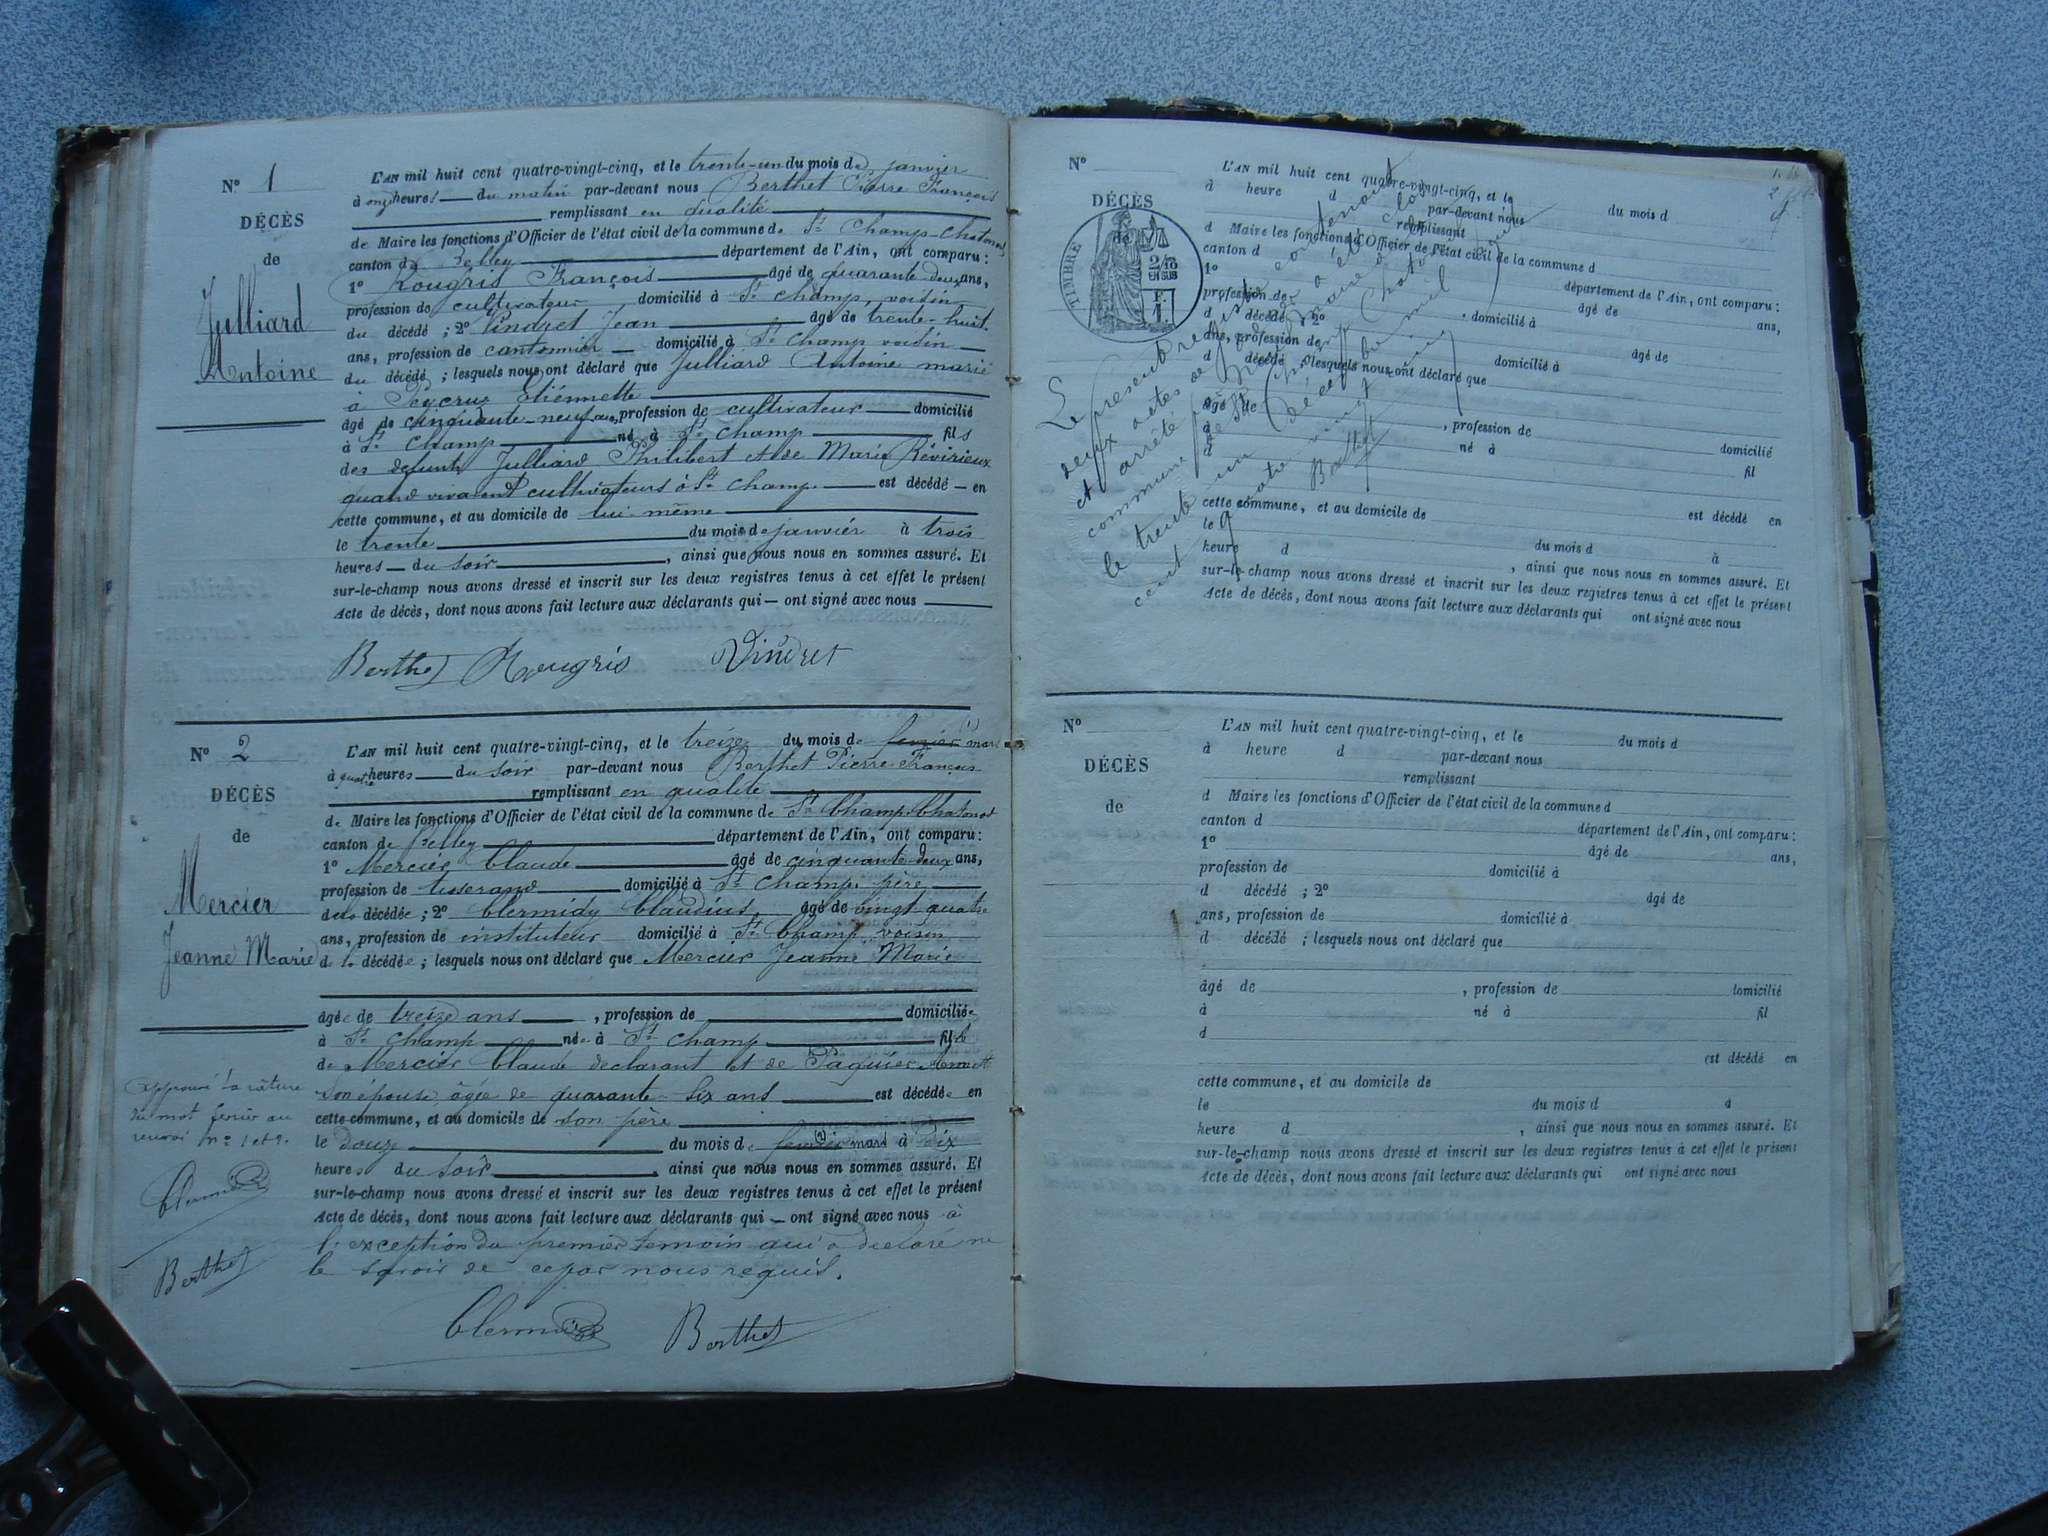 N° 1
DÉCÈS
de
Julliard
Antoine
L'AN mil huit cent quatre-vingt-cinq, et le trente-un du mois de janvier
à onze heures du matin par-devant nous Berthet Pierre François
remplissant en qualité
de Maire les fonctions d'Officier de l'état civil de la commune de St Champ-Chatonod
canton de Belley département de l'Ain, ont comparu :
1° Rougris François âgé de quarante deux ans,
profession de cultivateur domicilié à St Champ, voisin
du décédé ; 2° Vindret Jean âgé de trente-huit
ans, profession de cantonnier domicilié à St Champ voisin
du décédé ; lesquels nous ont déclaré que Julliard Antoine marié
à Etiennette
âgé de cinquante-neuf ans, profession de cultivateur domicilié
à St Champ né à St Champ fils
des defunts Julliard Philibert et de Marie Révirieux
quand vivaient cultivateurs à St Champ est décédé en
cette commune, et au domicile de lui même
le trente du mois de janvier à trois
heures du soir, ainsi que nous nous en sommes assuré. Et
sur-le-champ nous avons dressé et inscrit sur les deux registres tenus à cet effet le présent
Acte de décès, dont nous avons fait lecture aux déclarants qui ont signé avec nous
Berthet Rougris Vindret
N° 2
DÉCÈS
de
Mercier
Jeanne Marie
L'AN mil huit cent quatre-vingt-cinq, et le treize du mois de fevrier (1) mars
à quatre heures du soir par-devant nous Berthet Pierre François
remplissant en qualité
de Maire les fonctions d'Officier de l'état civil de la commune de St Champ Chatonod
canton de Belley département de l'Ain, ont comparu :
1° Mercier Claude âgé de cinquante-deux ans,
profession de tisserand domicilié à St Champ, père
de la décédée ; 2° Clermidy Claudius âgé de vingt quatre
ans, profession de instituteur domicilié à St Champ voisin
de la décédée ; lesquels nous ont déclaré que Mercier Jeanne Marie
âgée de treize ans, profession de domiciliée
à St Champ née à St Champ fille
de Mercier Claude declarant et de Paquier
son épouse âgée de quarante-six ans est décédée en
cette commune, et au domicile de son père
le douze du mois de fevrier (2) mars à dix
heures du soir, ainsi que nous nous en sommes assuré. Et
sur-le-champ nous avons dressé et inscrit sur les deux registres tenus à cet effet le présent
Acte de décès, dont nous avons fait lecture aux déclarants qui ont signé avec nous à
l'exception du premier temoin qui a declaré ne
le savoir de ce par nous requis.
Clermidy Berthet
Approuvé la rature
du mot fevrier au
renvoi n° 1 et 2.
Clermidy
Berthet
N°
DÉCÈS
de
TIMBRE
2/10
EN SUS
F.
1
L'AN mil huit cent quatre-vingt-cinq, et le du mois d
à heure d par-devant nous
remplissant
d Maire les fonctions d'Officier de l'état civil de la commune d
canton d département de l'Ain, ont comparu :
1° âgé de ans,
profession de domicilié à
d décédé ; 2° âgé de
ans, profession de domicilié à
d décédé ; lesquels nous ont déclaré que
âgé de , profession de domicilié
à né à fil
d
est décédé en
cette commune, et au domicile de
le du mois d à
heure d , ainsi que nous nous en sommes assuré. Et
sur-le-champ nous avons dressé et inscrit sur les deux registres tenus à cet effet le présent
Acte de décès, dont nous avons fait lecture aux déclarants qui ont signé avec nous
Le présent registre contenant
deux actes de décès a été clos
et arrêté par nous maire de la
commune de St Champ Chatonod
le trente un décembre mil
cent quatre vingt cinq
Berthet
N°
DÉCÈS
de
L'AN mil huit cent quatre-vingt-cinq, et le du mois d
à heure d par-devant nous
remplissant
d Maire les fonctions d'Officier de l'état civil de la commune d
canton d département de l'Ain, ont comparu :
1° âgé de ans,
profession de domicilié à
d décédé ; 2° âgé de
ans, profession de domicilié à
d décédé ; lesquels nous ont déclaré que
âgé de , profession de domicilié
à né à fil
d
est décédé en
cette commune, et au domicile de
le du mois d à
heure d , ainsi que nous nous en sommes assuré. Et
sur-le-champ nous avons dressé et inscrit sur les deux registres tenus à cet effet le présent
Acte de décès, dont nous avons fait lecture aux déclarants qui ont signé avec nous